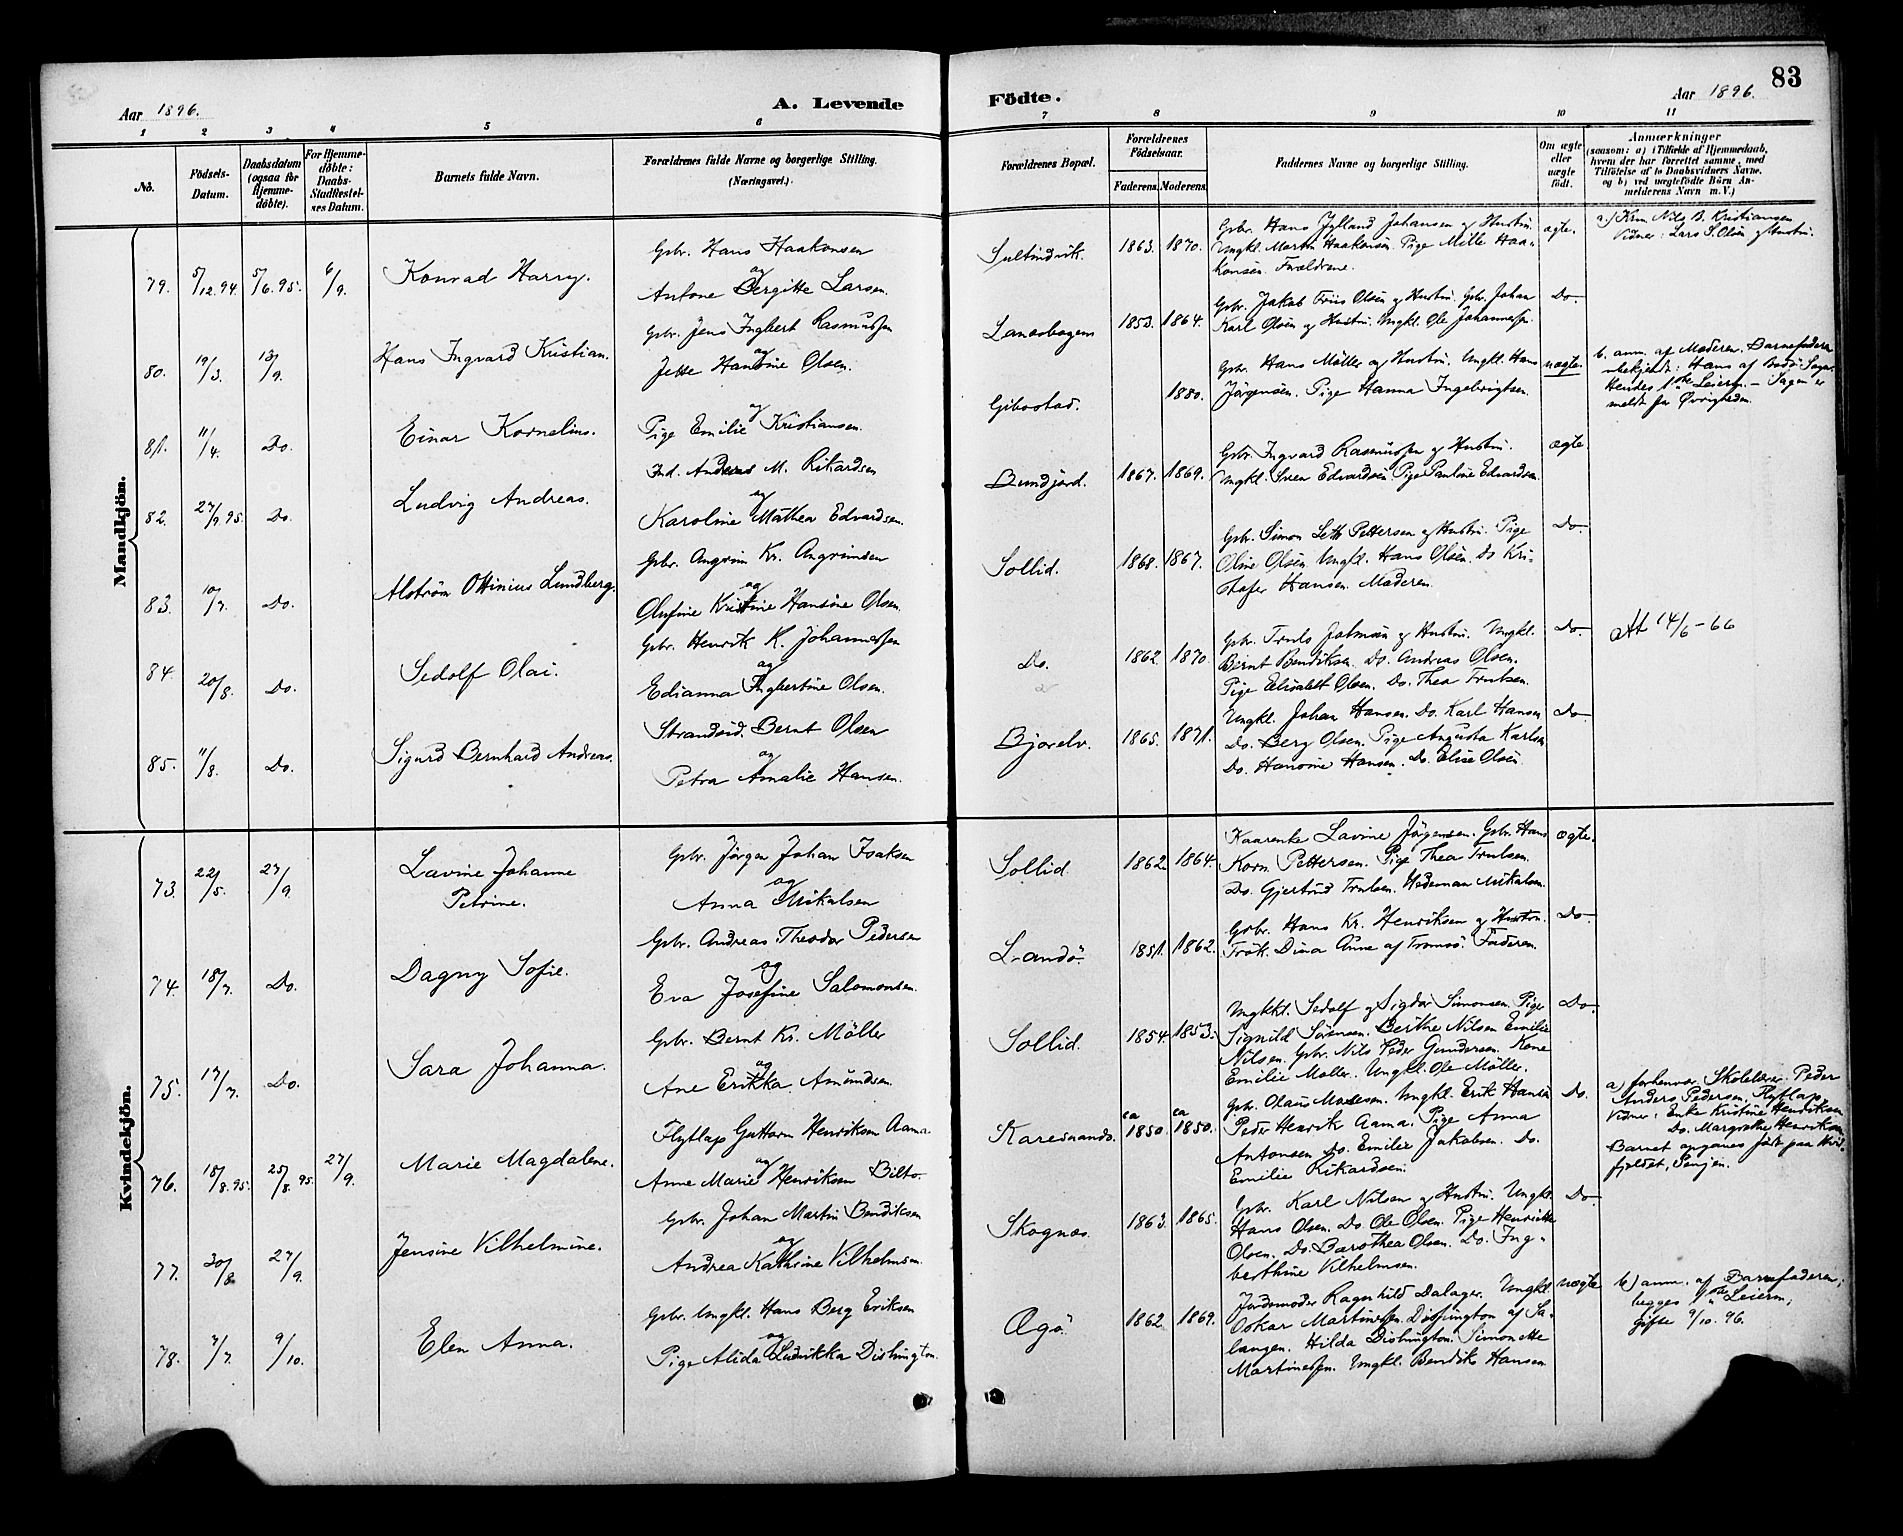 83
Aar 1896.
A. Levende
Födte.
Aar 1896.
1 2 3 4 5 6 7 8 9 10 11
No.
Födsels-
Datum.
Daabsdatum
(ogsaa for
Hjemme-
döbte).
For Hjemme-
döbte:
Daabs-
Stadfæstel-
ses Datum.
Barnets fulde Navn.
Forældrenes fulde Navne og borgerlige Stilling.
(Næringsvei.)
Forældrenes Bopæl.
Forældrenes
Födselsaar.
Faderens. Moderens.
Faddernes Navne og borgerlige Stilling.
Om ægte
eller
uægte
födt.
Anmærkninger
(saasom: a) i Tilfælde af Hjemmedaab,
hvem der har forrettet samme, med
Tilföielse af to Daabsvidners Navne,
og b) ved uægtefödte Börn An-
melderens Navn m. V.)
Mandkjön.
79. 5/12.94. 5/6.95. 6/9.
Konrad Harry.
Gbr. Hans Haakonsen
og
Antone Bergitte Larsen.
1863. 1870.
Gbr. Hans Jylland Johansen og Hustru.
Ungkl. Martin Haakonsen. Pige Mille Haa-
konsen. Forældrene.
ægte.
a.) Krm. Nils B. Kristiansen
Vidner: Lars S. Olsen og Hustru.
80. 19/3. 13/9.
Hans Ingvard Kristian.
Gbr. Jens Ingbert Rasmussen
og
Jette Hansine Olsen.
1853. 1864.
Gbr. Jakob Friis Olsen og Hustru. Gbr. Johan
Karl Olsen og Hustru. Ungkl. Ole Johannessen.
Do.
81. 11/4. Do.
Einar Kornelius.
Pige Emilie Kristiansen.
og
Gibostad.
1880.
Gbr. Hans Möller og Hustru. Ungkl. Hans
Jörgensen. Pige Hanna Ingebrigtsen.
uægte.
b. anm. af Moderen. Barnefaderen
ubekjendt: Hans af Bodö Sogn.
Hendes 1ste Leierm. – Sagen er
meldt for Øvrigheden.
82. 27/9.95. Do.
Ludvig Andreas.
Ind. Andreas M. Rikardsen
og
Karoline Mathea Edvardsen.
Bundjord.
1867. 1869.
Gbr. Ingvard Rasmussen og Hustru.
Ungkl. Sven Edvardsen. Pige Pauline Edvardsen.
ægte
83. 10/7. Do.
Alström Ottinius Lundberg.
Gbr. Angrim Kr. Angrimsen
og
Olufine Kristine Hansine Olsen.
Sollid.
1868. 1867.
Gbr. Simon Seth Pettersen og Hustru. Pige
Oline Olsen. Ungkl. Hans Olsen. Do Kri-
stofer Hansen. Moderen.
Do
84. 20/8. Do.
Sedolf Olai.
Gbr. Henrik K. Johannessen
og
Edianna Ingbertine Olsen.
Do.
1862. 1870.
Gbr. Truls Johnsen og Hustru. Ungkl.
Bernt Bendiksen. Do. Andreas Olsen.
Pige Elisabeth Olsen. Do. Thea Trulsen.
Do.
Att 14/6-66
85. 11/8. Do.
Sigurd Bernhard Andreas.
Strandsid. Bernt Olsen
og
Petra Amalie Hansen.
Bjorelv.
1865. 1871.
Ungkl. Johan Hansen. Do. Karl Hansen
Do. Berg Olsen. Pige Augusta Karlsen
Do. Hansine Hansen. Do. Elise Olsen
Do
Kvindekjön.
73. 22/5. 27/9.
Lavine Johanne
Petrine.
Gbr. Jörgen Johan Isaksen
og
Anna Mikalsen
Sollid.
1862 1864.
Kaarenke Lavine Jörgensen. Gbr. Hans
Korn. Pettersen. Pige Thea Trulsen.
Do. Gjertrud Trulsen. Hedeman Mikalsen.
ægte.
74. 18/7. Do.
Dagny Sofie.
Gbr. Andreas Theodor Pedersen
og
Eva Josefine Salomonsen.
Landö.
1851. 1862.
Gbr. Hans Kr. Henriksen og Hustru.
Frök. Dina Aune af Tromsö. Faderen.
Do.
75. 17/7. Do.
Sara Johanna.
Gbr. Bernt Kr. Möller
og
Ane Erikka Amundsen.
Sollid.
1854. 1853.
Ungkl. Sedolf og Sigdor Simonsen. Pige
Signild Sörensen. Berthe Nilsen Emilie
Nilsen. Gbr. Nils Peder Gundersen. Kone
Emilie Möller. Ungkl. Ole Möller.
Do
76. 18/8.95. 25/8.95. 27/9.
Marie Magdalene.
Flytlap Guttorm Henriksen Aama
og
Anne Marie Henriksen Bilto.
Karesuando.
ca 1850. ca 1850.
Gbr. Olaus Madsen. Ungkl. Erik Hansen
Peder Henrik Aama. Pige Anna
Antonsen. Do. Emilie Jakobsen. Do.
Emilie Rikardsen.
Do.
a) forhenvær. Skolelærer Peder
Anders Pedersen, Flytlap
Vidner: Enke Kristine Henriksen
Do. Margrethe Henriksen
Barnet opgaves födt paa
fjeldet, Senjen.
77. 30/8. 27/9.
Jensine Vilhelmine.
Gbr. Johan Martin Bendiksen
og
Andrea Kathrine Vilhelmsen.
Skognæs.
1863. 1865.
Gbr. Karl Nilsen og Hustru. Ungkl.
Hans Olsen. Do. Ole Olsen. Pige Henriette
Olsen. Do. Barothea Olsen. Do. Ing-
berthine Vilhelmsen.
Do
78. 7/7. 9/10.
Elen Anna.
Gbr. Ungkl. Hans Berg Eriksen
og
Pige Alida Ludvikka Dishington.
Ægö.
1862. 1869.
Jordemoder Ragnhild Dalager. Ungkl.
Oskar Martinussen. Dishington af Sa-
langen. Hilda Dishington. Simonette
Martinessen. Ungkl. Bendik Hansen
uægte
b) anm. af Barnefaderen;
begges 1ste Leierm;
gifte 9/10. 96.